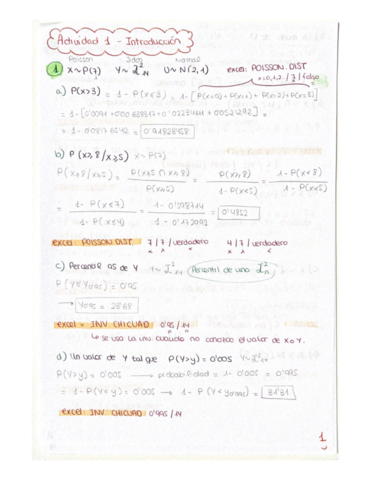 Actividad 1 - Introducción
Poisson Normal
1 X~P(7) Y~ χ²₁₄ U~N(2,1) excel: POISSON.DIST
x=0,1,2 / 7 / falso
a) P(X>3) = 1 - P(X≤3) = 1 - [P(x=0) + P(x=1) + P(x=2) + P(x=3)]
= 1 - 0'08176542 = 0'91823458
b) P(X≥8/X≥5) X~P(7)
P(X≥8/X≥5) = P(X≥5 ∩ X≥8) / P(X≥5) = P(X≥8) / 1 - P(X<5) = 1 - P(X<8) / 1 - P(X<5)
= 1 - P(X≤7) / 1 - P(X≤4) = 1 - 0'598714 / 1 - 0'172992 = 0'4852
excel: POISSON DIST 7 / 7 / verdadero 4 / 7 / verdadero
c) Percentil 95 de Y Y~ χ²₁₄ Percentil de una χ²ₙ
P[Y≤Y0'95] = 0'95
→ Y0'95 = 23'68
excel = INV. CHICUAD 0'95 / 14
↳ se usa la inv. cuando no conozco el valor de X o Y.
d) Un valor de Y tal que P(Y>y) = 0'005 Y~χ²₁₄
P(Y>y) = 0'005 → probabilidad = 1 - 0'005 = 0'995
= 1 - P(Y<y) = 0'005 → 1 - P(Y< ) = 31'31
excel: INV. CHICUAD 0'995 / 14
1